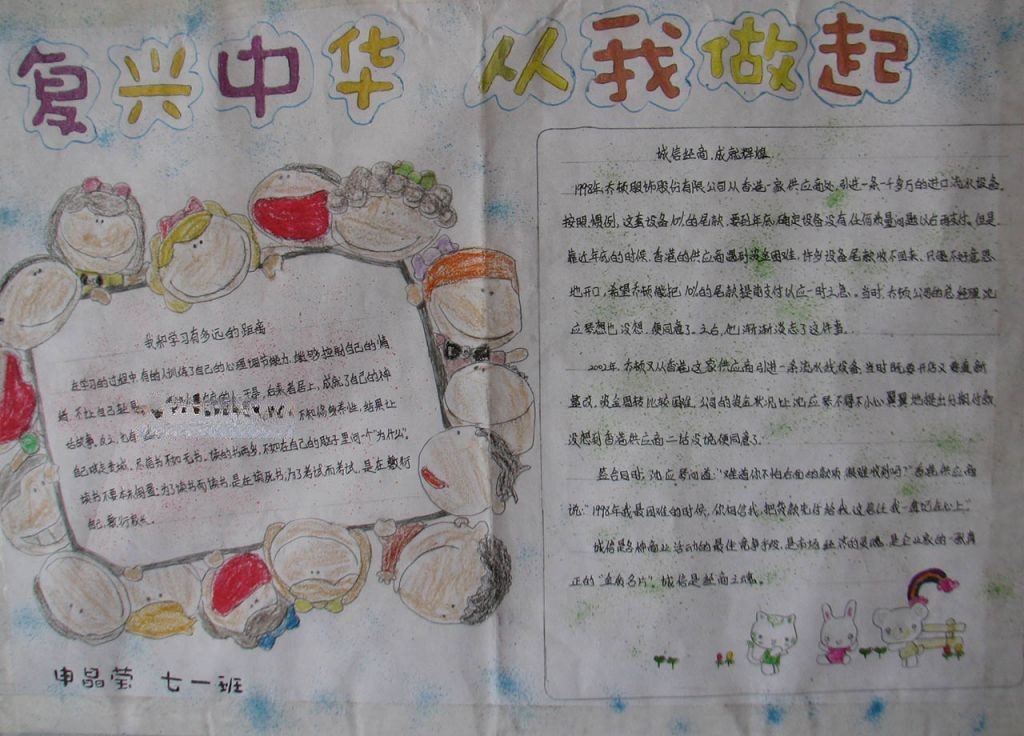 复兴中华 从我做起
我和学习有多远的距离
在学习的过程中有的人训练了自己的心理调节能力,能够控制自己的情
绪,不让自己轻易 于是,后来者居上,成就了自己的辉
自己 尽信书不如无书。读的书再多,不如在自己的肚子里问一个"为什么"。
读书不要本末倒置:为了读书而读书,是在读死书;为了考试而考试,是在敷衍
自己,敷衍家长。
诚信经商,成就辉煌
1998年乔顿服饰股份有限公司从香港一家供应商处,引进一条一千多万的进口流水设备。
按照惯例,这套设备10%的尾款,要到年底确定设备没有任何质量问题以后再支付。但是
靠近年底的时候,香港的供应商遇到资金困难,许多设备尾款收不回来,只得不好意思
地开口,希望乔顿能把10%的尾款提前支付以应一时之急。当时,乔顿公司的总经理沈
应琴想也没想,便同意了。之后,他渐渐淡忘了这件事。
2002年,乔顿又从香港这家供应商引进一条流水线设备,当时既要开店又要重新
整改,资金周转比较困难,公司的资金状况让沈应琴不得不小心翼翼地提出分期付款
没想到香港供应商二话没说便同意了。
签合同时,沈应琴问道:"难道你不怕后面的款项很难收到吗?"香港供应商
说:"1998年我最困难的时候,你相信我,把货款先付给我,这恩让我一直记在心上"
诚信是各种商业活动的最佳竞争手段,是市场经济的灵魂,是企业家的一张真
正的"金质名片"。诚信是经商之魂。
申晶莹 七一班